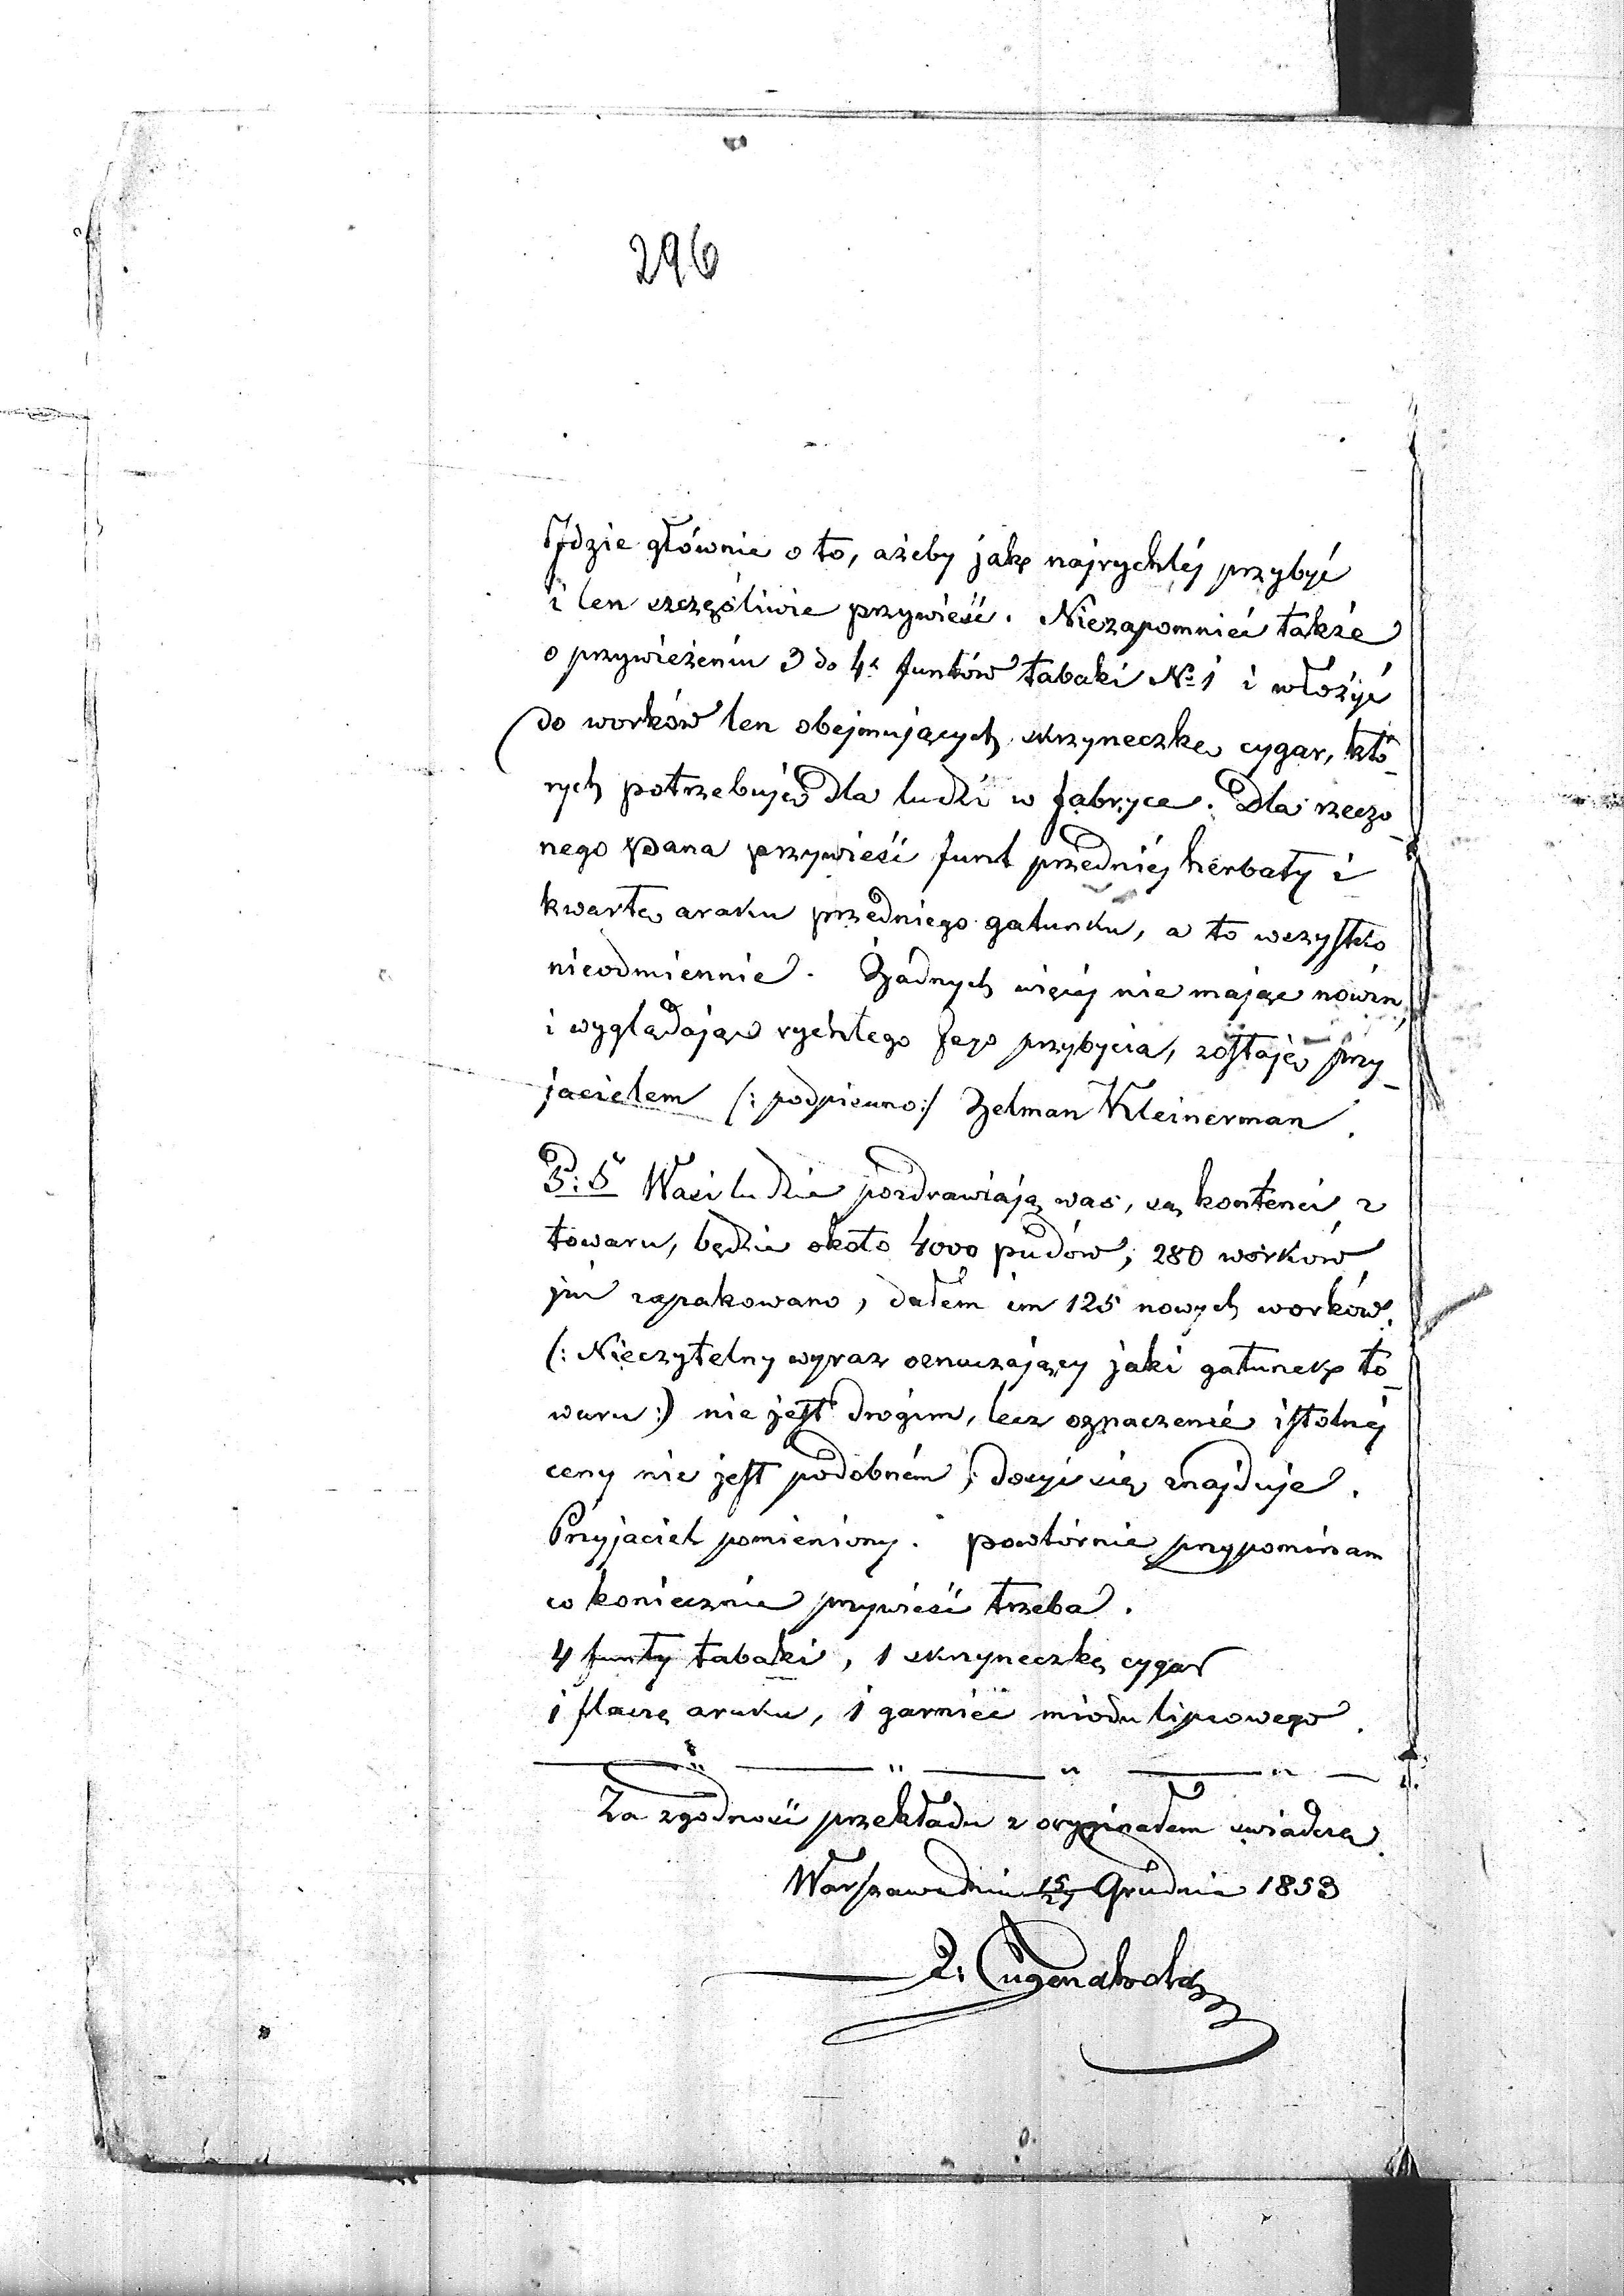 296
Idzie głównie o to, ażeby jak najrychléj przybyć
i len szczęśliwie przywieść. Niezapomnieć także
o przywiezieniu 3 do 4ch funtów tabaki № 1 i włożyć
do worków len obejmujących skrzyneczkę cygar, któ-
rych potrzebuję dla ludzi w fabryce. Dla rzeczo-
nego Pana przywieść funt przedniéj herbaty i
kwartę araku przedniego gatunku, a to wszystko
nieodmiennie. Żadnych więcéj nie mając nowin,
i wyglądając rychłego Jego przybycia, zostaję przy-
jacielem /: podpisano :/ Zelman Kleinerman.
P: S Wasi ludzie pozdrawiają was, są kontenci z
towaru, będzie około 4000 pudów, 280 worków
już zapakowano, dałem im 125 nowych worków.
(: Nieczytelny wyraz oznaczający jaki gatunek to-
waru :) nie jest drogim, lecz oznaczenie istotnéj
ceny nie jest podobném, dosyć się znajduje.
Przyjaciel pomieniony. powtórnie przypominam
co koniecznie przywieść trzeba.
4 funty tabaki, 1 skrzyneczkę cygar
1 flaszę araku, 1 garniec miodu lipcowego.
Za zgodność przekładu z oryginałem świadczę.
Warszawa dnia 15/27 Grudnia 1853